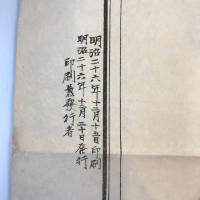 明治二十六年十二月十五日印刷
明治二十六年十二月二十日発行
印刷兼発行者